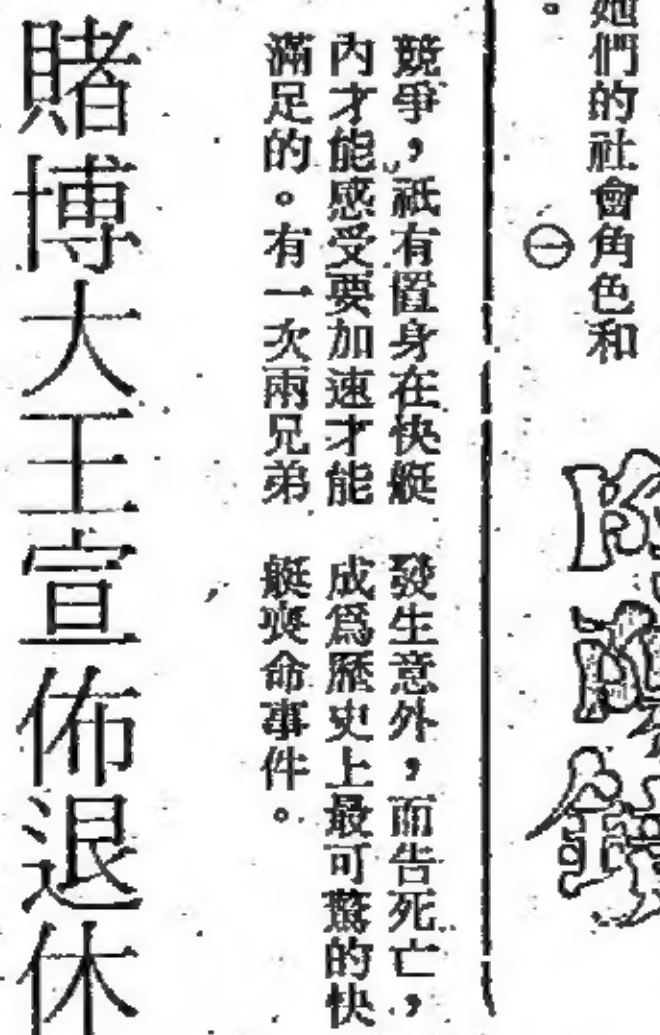 她們的社會角色和
。
㊀
競爭，祇有置身在快艇
內才能感受要加速才能
滿足的。有一次兩兄弟
發生意外，而告死亡，
成爲歷史上最可驚的快
艇喪命事件。
賭博大王宣佈退休